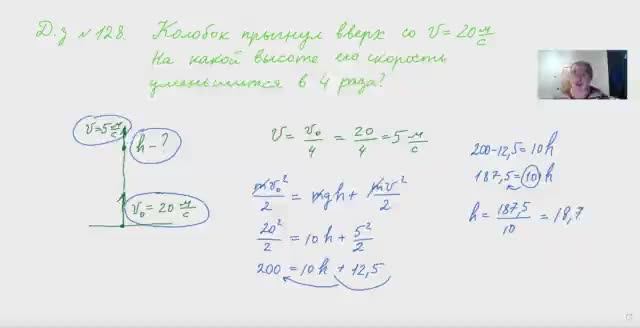 Д.з № 128. Колобок прыгнул вверх со V = 20 м/с
На какой высоте его скорость
уменьшится в 4 раза?
V = 5 м/с
h - ?
V₀ = 20 м/с
V = V₀/4 = 20/4 = 5 м/с
mV₀²/2 = mgh + mV²/2
20²/2 = 10h + 5²/2
200 = 10h + 12,5
200 - 12,5 = 10h
187,5 = 10 h
h = 187,5/10 = 18,7